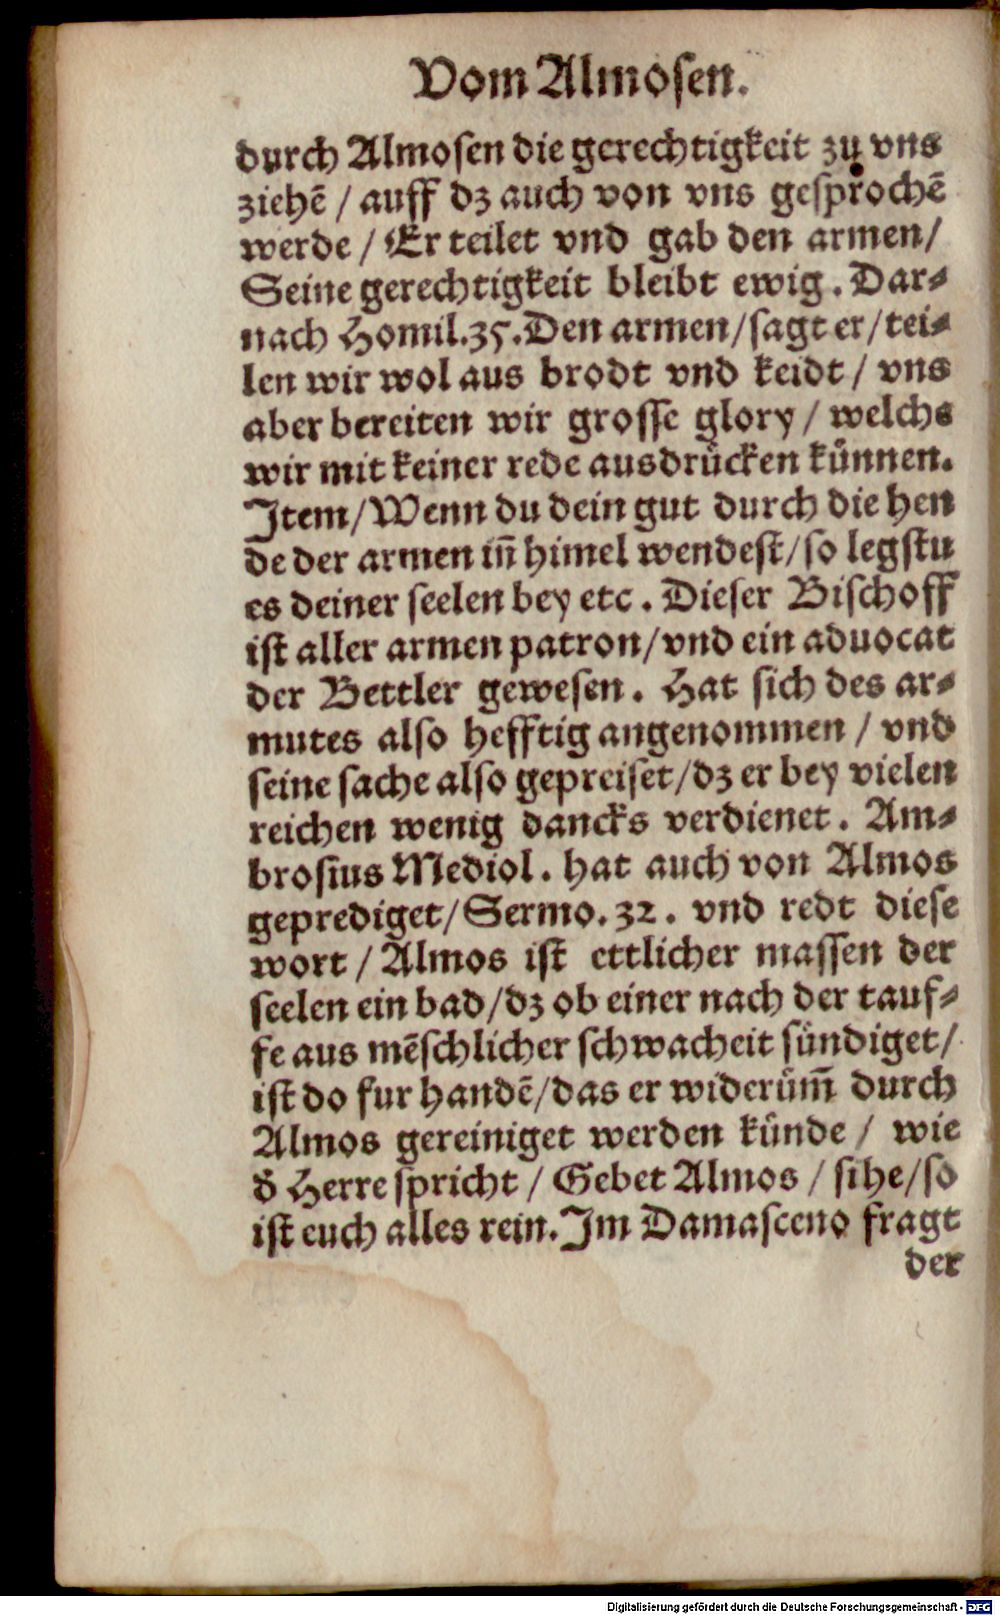 Vom Almosen.
durch Almosen die gerechtigkeit zu vns
ziehē / auff dz auch von vns gesprochē
werde / Er teilet vnd gab den armen /
Seine gerechtigkeit bleibt ewig. Dar⸗
nach Homil. 35. Den armen / sagt er / tei⸗
len wir wol aus brodt vnd keidt / vns
aber bereiten wir grosse glory / welchs
wir mit keiner rede ausdrücken künnen.
Item / Wenn du dein gut durch die hen
de der armen iñ himel wendest / so legstu
es deiner seelen bey etc. Dieser Bischoff
ist aller armen patron / vnd ein aduocat
der Bettler gewesen. Hat sich des ar⸗
mutes also hefftig angenommen / vnd
seine sache also gepreiset / dz er bey vielen
reichen wenig dancks verdienet. Am⸗
brosius Mediol. hat auch von Almos
geprediget / Sermo. 32. vnd redt diese
wort / Almos ist ettlicher massen der
seelen ein bad / dz ob einer nach der tauf⸗
fe aus mēschlicher schwacheit sündiget /
ist do fur handē / das er widerüm̄ durch
Almos gereiniget werden künde / wie
d̄ Herre spricht / Gebet Almos / sihe / so
ist euch alles rein. Im Damasceno fragt
der
Digitalisierung gefördert durch die Deutsche Forschungsgemeinschaft - DFG